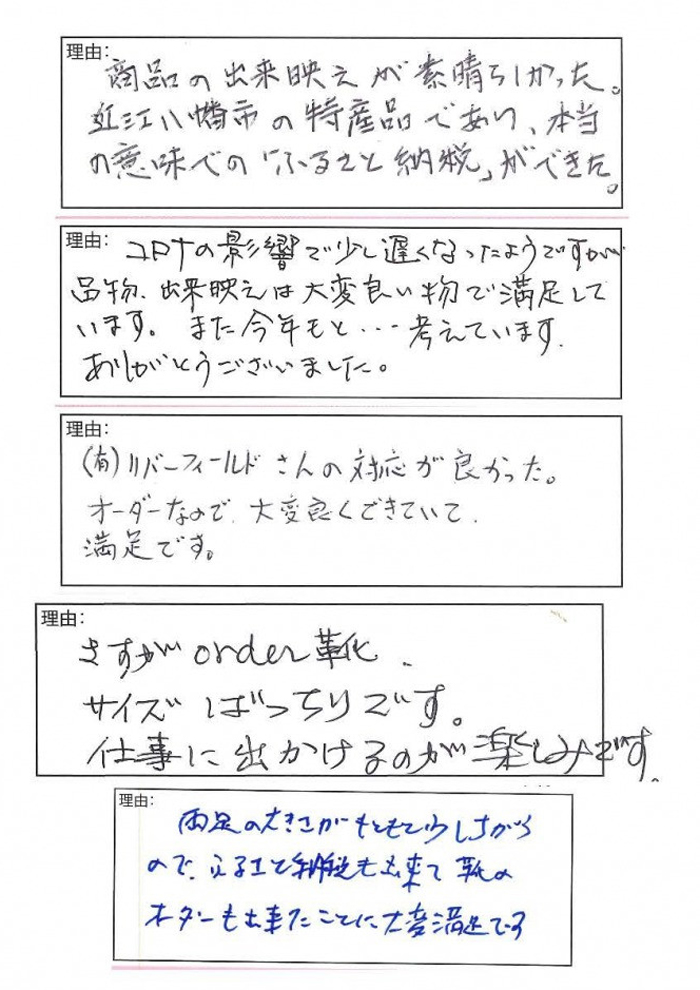 理由:
商品の出来映えが素晴らしかった。
近江八幡市の特産品であり、本当
の意味での「ふるさと納税」ができた。
理由:
コロナの影響で少し遅くなったようですが
品物、出来映えは大変良い物で満足して
います。また今年もと・・・考えています.
ありがとうございました。
理由:
(有)リバーフィールドさんの対応が良かった。
オーダーなので、大変良くできていて、
満足です。
理由:
さすがorder靴.
サイズばっちりです。
仕事に出かけるのが楽しみです。
理由:
両足の大きさがもともと少しちがう
ので、ふるさと納税も出来て靴の
オーダーも出来たことに大変満足です